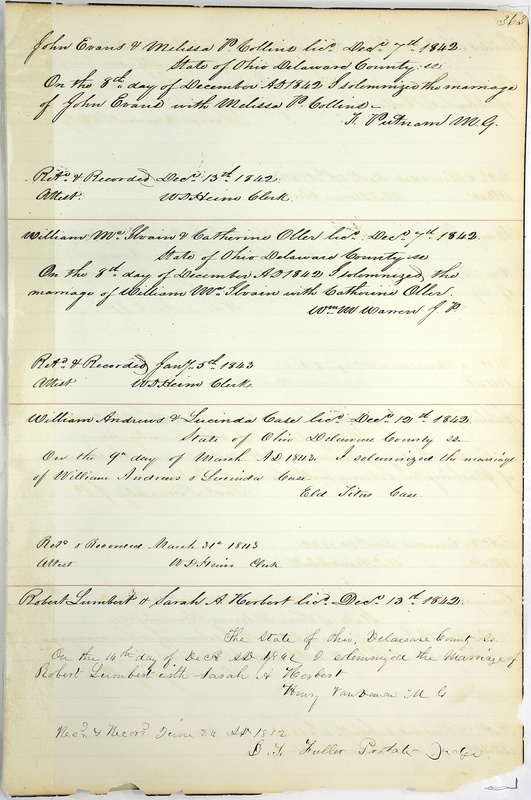 363
John Evans & Melissa P. Collins lic. Decr. 7th. 1842.
State of Ohio Delaware County ss
On the 8th day of December AD 1842 I solemnized the marriage
of John Evans with Melissa P. Collins.
Putnam M. G.
Retd. & Recorded Decr. 13th. 1842.
Attest. W D Heim Clerk.
William Mc Ilvain & Catherine Oller lic. Decr. 7th. 1842.
State of Ohio Delaware County ss
On the 8th day of December AD 1842 I solemnized the
marriage of William Mc Ilvain with Catherine Oller.
Wm. W Warren J. P
Retd. & Recorded Jany. 5th. 1843
Attest W D Heim Clerk.
William Andrews & Lucinda Case lic. Decr. 12th. 1842.
State of Ohio Delaware County ss.
On the 9th day of March AD 1843. I solemnized the marriage
of William Andrews & Lucinda Case
Eld Titus Case
Retd. & Recorded March 31st 1843
Attest W D Heim Clerk
Robert Lumbert & Sarah A. Herbert lic. Decr. 13th. 1842.
The State of Ohio, Delaware County ss.
On the 14th day of Decr AD 1842 I solemnized the Marriage of
Robert Lumbert with Sarah A Herbert
Henry Van Deman M G
Recd. & Record June 24 AD
Fuller Probate Judge